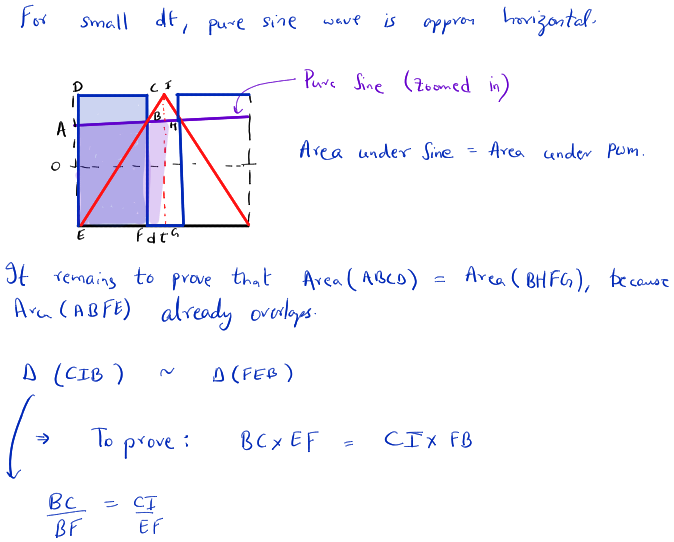 For small dt, pure sine wave is approx horizontal.
D C I
Pure Sine (Zoomed in)
A B H
Area under Sine = Area under PWM.
O
E F dt G
It remains to prove that Area (ABCD) = Area (BHFG), because
Area (ABFE) already overlaps.
Δ (CIB) ~ Δ (FEB)
⇒ To prove : BC x EF = CI x FB
BC/BF = CI/EF